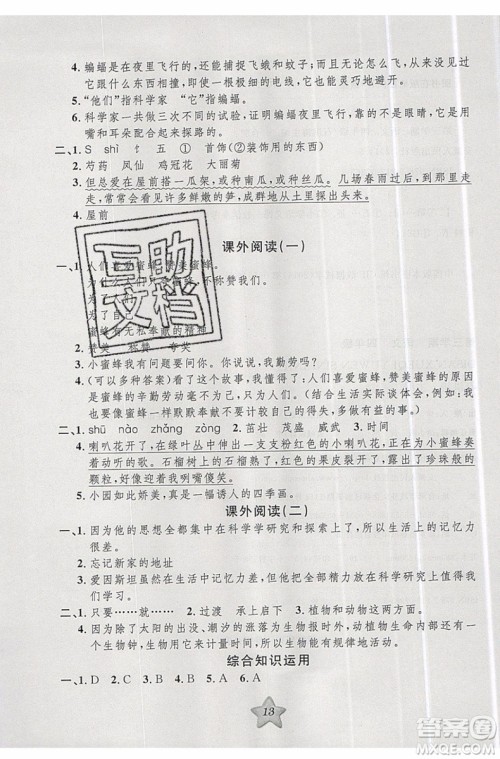 4. 蝙蝠是在夜里飞行的，还能捕捉飞蛾和蚊子；而且无论怎么飞，从来没见过
它跟什么东西相撞，即使一根极细的电线，它也能灵巧地避开。
5. “他们”指科学家 “它”指蝙蝠。
6. 科学家一共做三次不同的试验，证明蝙蝠夜里飞行，靠的不是眼睛，它是用
嘴和耳朵配合起来探路的。
二、1. S shì 饣 五 ① 首饰(②装饰用的东西)
2. 芍药 凤仙 鸡冠花 大丽菊
3. 但总爱在屋前搭一瓜架，或种南瓜，或种丝瓜。几场春雨过后，到那里走
走，常常会看见许多鲜嫩的笋，成群地从土里探出头来。
4. 屋前
课外阅读(一)
一、1. 人们喜爱蜜蜂，赞美蜜蜂。
为什么人们只赞美蜜蜂，不称赞我们。
为了
为了自己
蜜蜂有无私奉献的精神
2. 赞美 称赞 夸奖
3. 小蜜蜂我有问题要问你。你说，我勤劳吗？
4. (可以有多种答案)(感悟角度可以是：人们喜爱蜜蜂，赞美蜜蜂的原因
是蜜蜂不但勤劳，而且还有奉献精神。结合生活实际谈体会，例如：我也
要像蜜蜂那样默默奉献不求回报，做人不能太自私，要勤劳，多做对别人
有益的事。)
二、1. shū nào zhǎng zòng 2. 茁壮 茂盛 威武 3. 时间
4. 喇叭花开了，在绿叶丛中一支支粉红色的小喇叭花，正在为小蜜蜂演奏
着动听的歌。石榴树上的石榴熟了，红色的果皮裂开了，露出了珍珠般的
籽粒，好像在对我咧嘴傻笑。
5. 小园如此娇美，真是一幅美丽的四季画。
课外阅读(二)
一、1. 因为他的思想全都集中在科学学研究和探索上了，所以生活上的记忆力
很差。
2. 忘记新家的地址
3. 爱因斯坦虽然在生活中的记忆力差，但他用全部精力放在了科学研究上。
二、1. 只要……就…… 2. 过渡 承上启下 3. 植物和动物这两方面。
4. 因为除了太阳的出没、潮汐的涨落为生物报时外，动植物生命内部还有一
个生物钟，生物用它来计量时间，所以生物能有规律地活动。
综合知识运用
一、1. D 2. C 3. A 4. C 5. B 6. C
13
互助
文档
答案圈
MXQE.COM